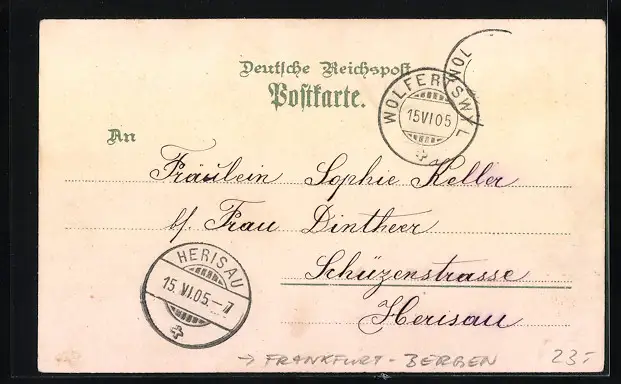 Deutsche Reichspost
Postkarte.
WOLFERTSWYL
15 VI 05
WOL
An
Fräulein Sophie Keller
b/. Frau Dintheer
Schüzenstrasse
Herisau
HERISAU
15.VI.05.-7
→ FRANKFURT - BERGEN 23.-